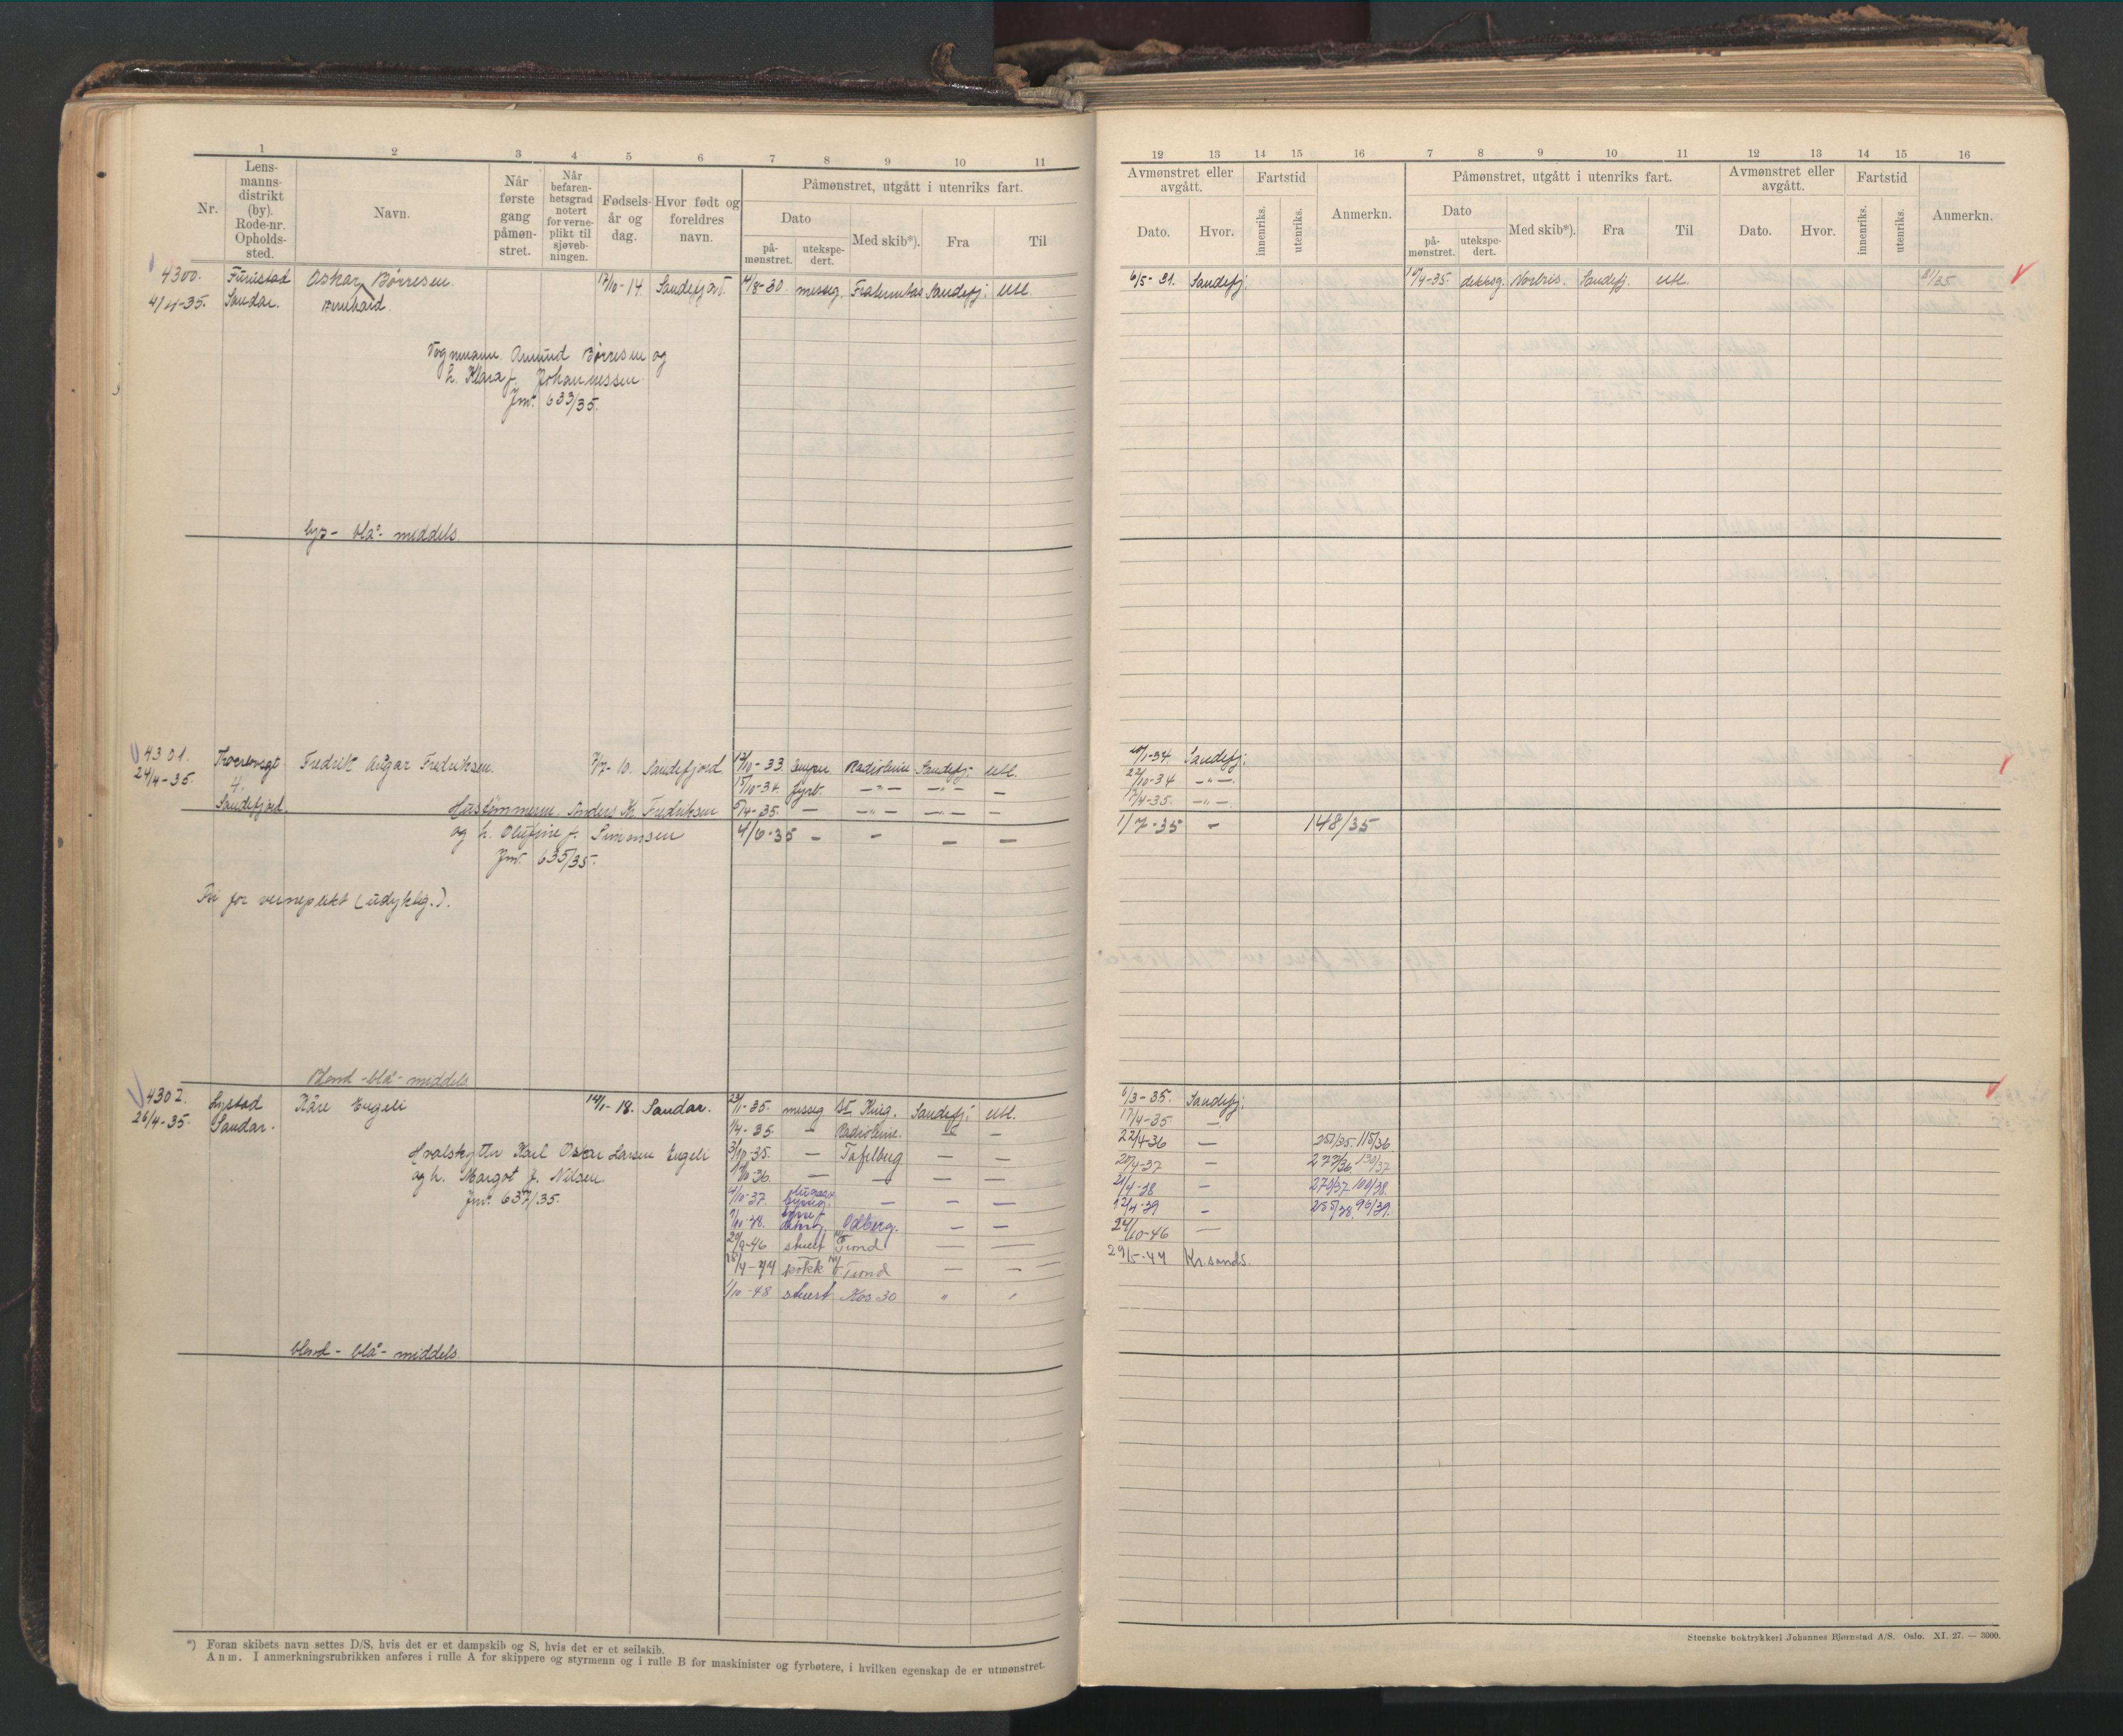 1 2 3 4 5 6 7 8 9 10 11
Nr. Lensmannsdistrikt (by). Rode-nr. Opholdssted. Navn. Når første gang påmønstret. Når befarenhetsgrad notert for verneplikt til sjøvebningen. Fødselsår og dag. Hvor født og foreldres navn. Påmønstret, utgått i utenriks fart.
Dato Med skib*). Fra Til
påmønstret. utekspedert.
12 13 14 15 16 7 8 9 10 11 12 13 14 15 16
Avmønstret eller avgått. Fartstid Anmerkn. Påmønstret, utgått i utenriks fart. Avmønstret eller avgått. Fartstid Anmerkn.
Dato. Hvor. innenriks. utenriks. Dato Med skib*). Fra Til Dato. Hvor. innenriks. utenriks.
påmønstret. utekspedert.
4300. Furustad Oskar Børresen 14. Sandefjord. 8-30. messg. Fraternitas Sandefj: Utl. 6/5-31. Sandefj: 4-35. dekksg. Norbris. Sandefj. Utl. 81/35
4/4-35. Sandar. Bernhard.
Vognmann. Amund Børresen og
h. Klara f. Johannessen
Jnr. 633/35.
lys- blå- middels.
4301. Fredrik Fredriksen. 10. Sandefjord 33 Radioleine Sandefj: Utl. 1-34 Sandefj:
24/4-35. 4. 15/10-34. fyrb. —"— —"— — 22/10-34 —"—
Sandefjord. Hustømmerm Anders Kr. Fredriksen 4-35. — —"— — — 4-35. —"—
og h. Olufine f. Simonsen 4/6-35 — — — — 1/7-35 — 148/35
Jnr. 635/35.
Fri for verneplikt (udyktig.).
Blond - blå - middels
4302. Lystad Kåre Engeli 14/1-18. Sandar. 1-35. messg Sandefj: Utl. 6/3-35. Sandefj:
26/4-35. Sandar. 4-35 — Radioleine. — — 17/4-35 —
Hvalskytter Karl Oskar Larsen Engeli 35. — Tafelberg — — 22/4-36 — 115/36
og h. Margot f. Nilsen 10-36. — — — — 20/4-37 — 130/37
Jnr. 637/35. 10-37. — — — 4-38 — 270/37 100/38.
38. Odberg. — — 12/4-39 — 96/39.
9-46 stuert Trond — — 24/10-46 —
kokk Trond — — 29/5-47 Kr.sands.
1/10-48 stuert Kos 30 "
blond - blå - middels.
*) Foran skibets navn settes D/S, hvis det er et dampskib og S, hvis det er et seilskib.
Anm. I anmerkningsrubrikken anføres i rulle A for skippere og styrmenn og i rulle B for maskinister og fyrbøtere, i hvilken egenskap de er utmønstret.
Steenske boktrykkeri Johannes Bjørnstad A/S. Oslo. XI. 27. — 3000.